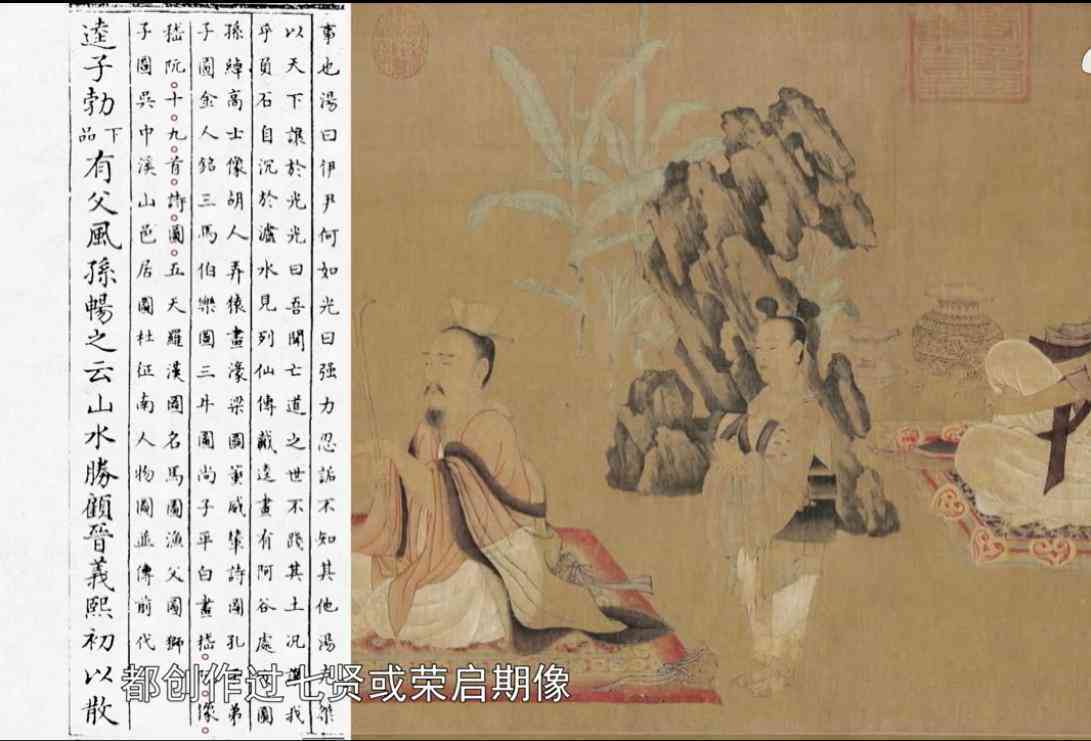 事也湯曰伊尹何如光曰强力忍詬不知其他湯桀
以天下讓於光光曰吾聞亡道之世不踐其土况我
乎負石自沉於瀘水見列仙傳戴逵畫有阿谷處圖
孫綽高士像胡人弄猿畫濠梁圖董威輦詩圖孔弟
子圖金人銘三馬伯樂圖三牛圖尚子平白畫嵇像
嵇阮十九首詩圖五天羅漢圖名馬圖漁父圖獅
子圖吳中溪山邑居圖杜征南人物圖並傳前代
逵子勃下品有父風孫暢之云山水勝顧晉義熙初以散
都创作过七贤或荣启期像